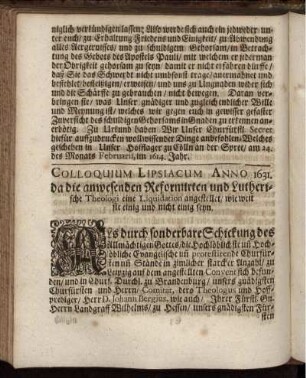 niglich verkündigen lassen; Also werde sich auch ein jedweder, un-
ter euch/ zu Erhaltung Friedens und Einigkeit/ zu Abwendung
alles Aergernusses/ und zu schuldigem Gehorsam/ in Betrach-
tung des Gebots des Apostels Pauli/ mit welchem er jederman
der Obrigkeit gehorsam zu seyn/ damit er nicht erfahren dürffe/
daß Sie das Schwerdt nicht umbsonst trage/ anermahnet und
befiehlet/ bescheidigen/ erweisen/ und uns zu Ungnaden wider sich
und die Schärffe zu gebrauchen/ nicht bewegen. Daran ver-
bringen sie/ was Unser gnädiger und zugleich endlicher Wille
und Meynung ist/ welches wir gegen euch in gewisser gefaster
Zuversicht des schuldigen Gehorsams in Gnaden zu erkennen an-
erbötig. Zu Urkund haben Wir Unser Churfürstl. Secret
hiefür auffzudrucken wollwissender Dinge anbefohlen/ Welches
geschehen in Unser Hofflager zu Cölln an der Spree/ am 24.
des Monats Februarii, im 1614. Jahr.
COLLOQUIUM LIPSIACUM ANNO 1631.
da die anwesenden Reformirten und Lutheri-
sche Theologi eine Liquidation angestellet, wie weit
sie einig und nicht einig seyn.
ALs durch sonderbare Schickung des
Allmächtigen Gottes/ die Hochlöblichste uñ Hoch-
löbliche Evangelische uñ protestierende Churfür-
sten uñ Stände in zimlicher starcker Anzahl/ zu
Leipzig auff dem angestellten Convent sich befun-
den/ und in Churf. Durchl. zu Brandenburg/ unsers gnädigsten
Churfürsten und Herrn/ Comitat, dero Theologus und Hoff-
prediger/ Herr D. Johann Bergius, wie auch/ Ihrer Fürstl. Gn.
Herrn Landgraff Wilhelms/ zu Hessen/ unsers gnädigsten Für-
sten